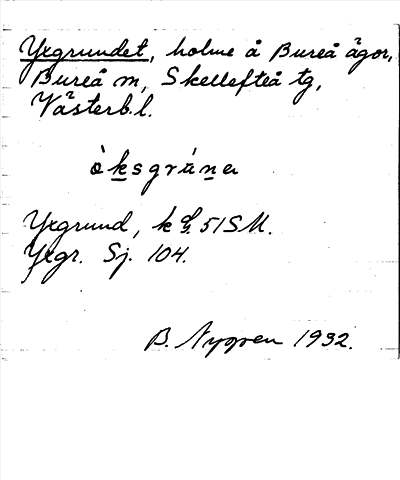 Yxgrundet, holme å Bureå ägor,
Bureå m, Skellefteå tg,
Västerb.l.
òksgránɐ
Yxgrund, k 51SM.
Yxgr. Sj. 104.
B. Nygren 1932.